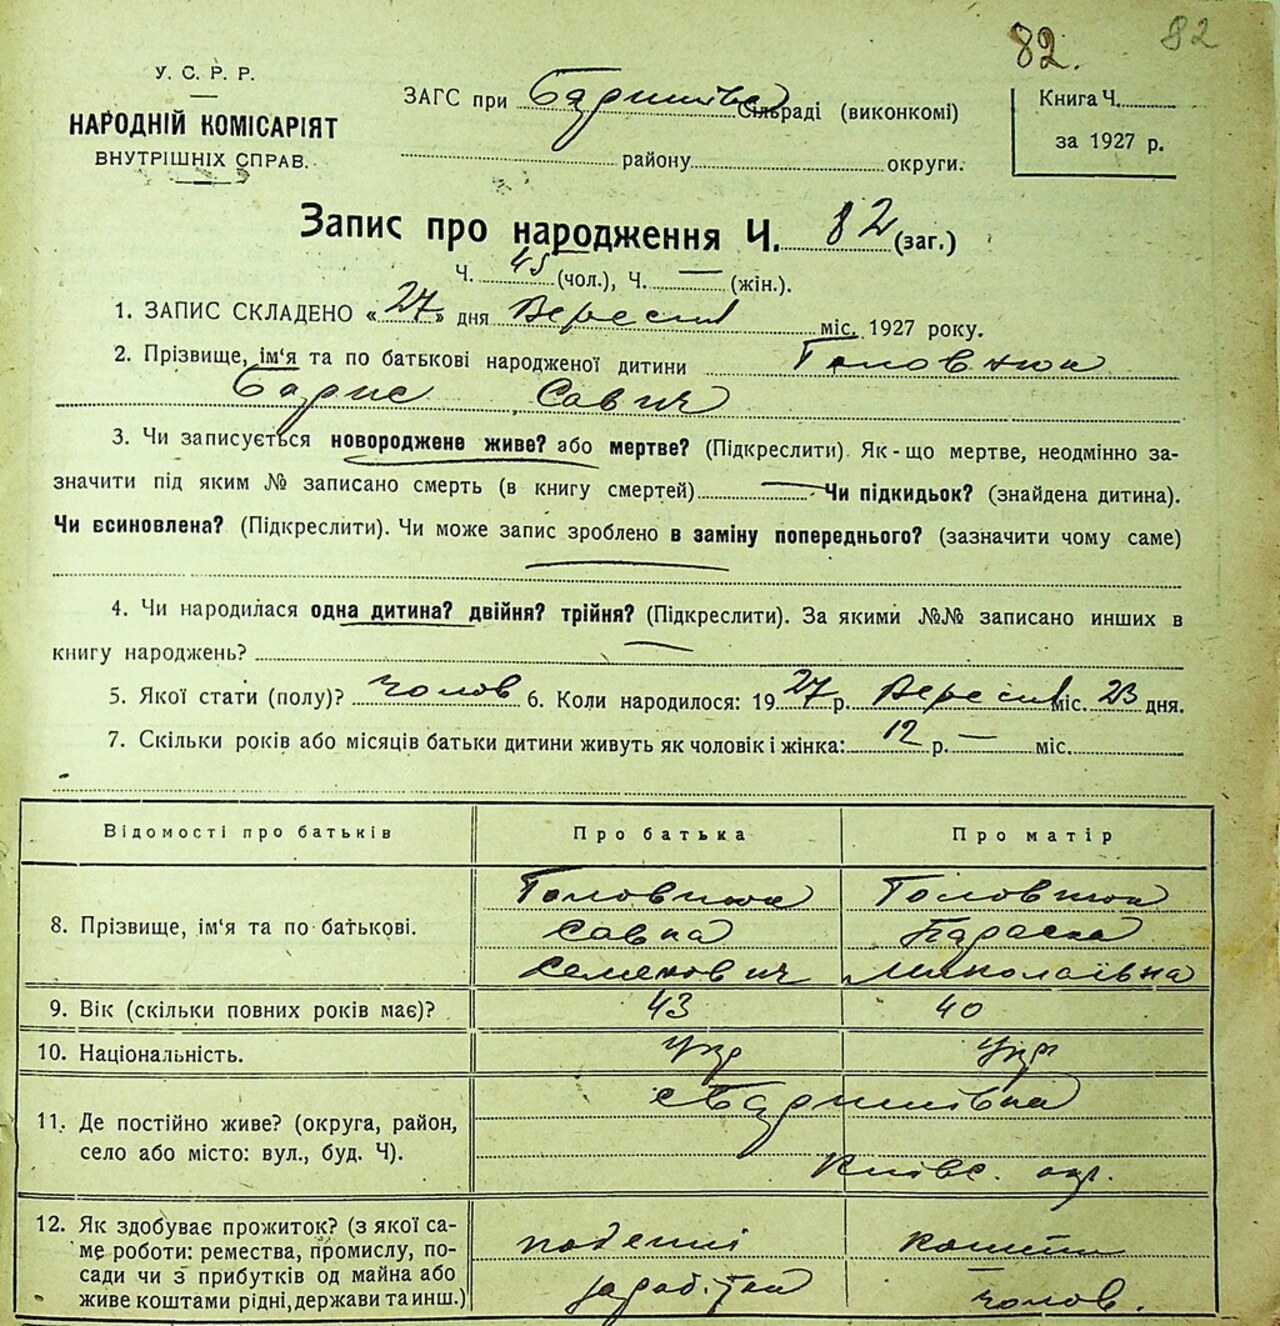 82. 82
У. С. Р. Р.
НАРОДНІЙ КОМІСАРІЯТ
ВНУТРІШНІХ СПРАВ.
ЗАГС при Баришівс Сільраді (виконкомі)
району округи.
Книга Ч.
за 1927 р.
Запис про народження Ч. 82 (заг.)
Ч. 45 (чол.), Ч. — (жін.).
1. ЗАПИС СКЛАДЕНО «27» дня Вересня міс. 1927 року.
2. Прізвище, ім'я та по батькові народженої дитини Головнюк
Барис Савич
3. Чи записується новороджене живе? або мертве? (Підкреслити). Як-що мертве, неодмінно за-
значити під яким № записано смерть (в книгу смертей) — Чи підкидьок? (знайдена дитина).
Чи всиновлена? (Підкреслити). Чи може запис зроблено в заміну попереднього? (зазначити чому саме)
4. Чи народилася одна дитина? двійня? трійня? (Підкреслити). За якими №№ записано инших в
книгу народжень? —
5. Якої стати (полу)? чолов 6. Коли народилося: 1927 р. Вересня міс. 23 дня.
7. Скільки років або місяців батьки дитини живуть як чоловік і жінка: 12 р. — міс.
Відомості про батьків Про батька Про матір
8. Прізвище, ім'я та по батькові. Головнюк Головнюк
Савка Параска
Семенович Миколаївна
9. Вік (скільки повних років має)? 43 40
10. Національність. Укр Укр
11. Де постійно живе? (округа, район,
село або місто: вул., буд. Ч).
с Баришівка
Київс. окр.
12. Як здобуває прожиток? (з якої са-
ме роботи: ремества, промислу, по-
сади чи з прибутків од майна або
живе коштами рідні, держави та инш.)
поденні
заробітки
кошти
чолов.